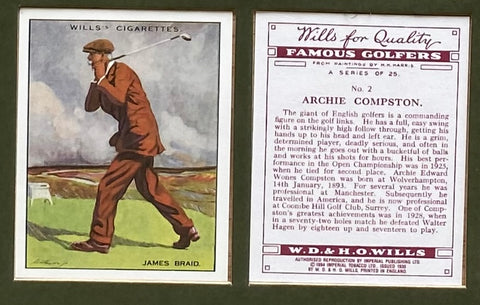 WILLS'S CIGARETTES
JAMES BRAID.
Wills for Quality
FAMOUS GOLFERS
FROM PAINTINGS BY
A SERIES OF 25.
No. 2
ARCHIE COMPSTON.
The giant of English golfers is a commanding
figure on the golf links. He has a full, easy swing
with a strikingly high follow through, getting his
hands up to his head and left ear. He is a grim,
determined player, deadly serious, and often in
the morning he goes out with a bucketful of balls
and works at his shots for hours. His best per-
formance in the Open Championship was in 1925,
when he tied for second place. Archie Edward
Wones Compston was born at Wolverhampton,
14th January, 1893. For several years he was
professional at Manchester. Subsequently he
travelled in America, and he is now professional
at Coombe Hill Golf Club, Surrey. One of Comp-
ston's greatest achievements was in 1928, when
in a seventy-two holes match he defeated Walter
Hagen by eighteen up and seventeen to play.
W.D.& H.O.WILLS
AUTHORISED REPRODUCTION BY IMPERIAL PUBLISHING LTD.
IMPERIAL TOBACCO LTD. ISSUED 1930
BY W. D. & H. O. WILLS, PRINTED IN ENGLAND